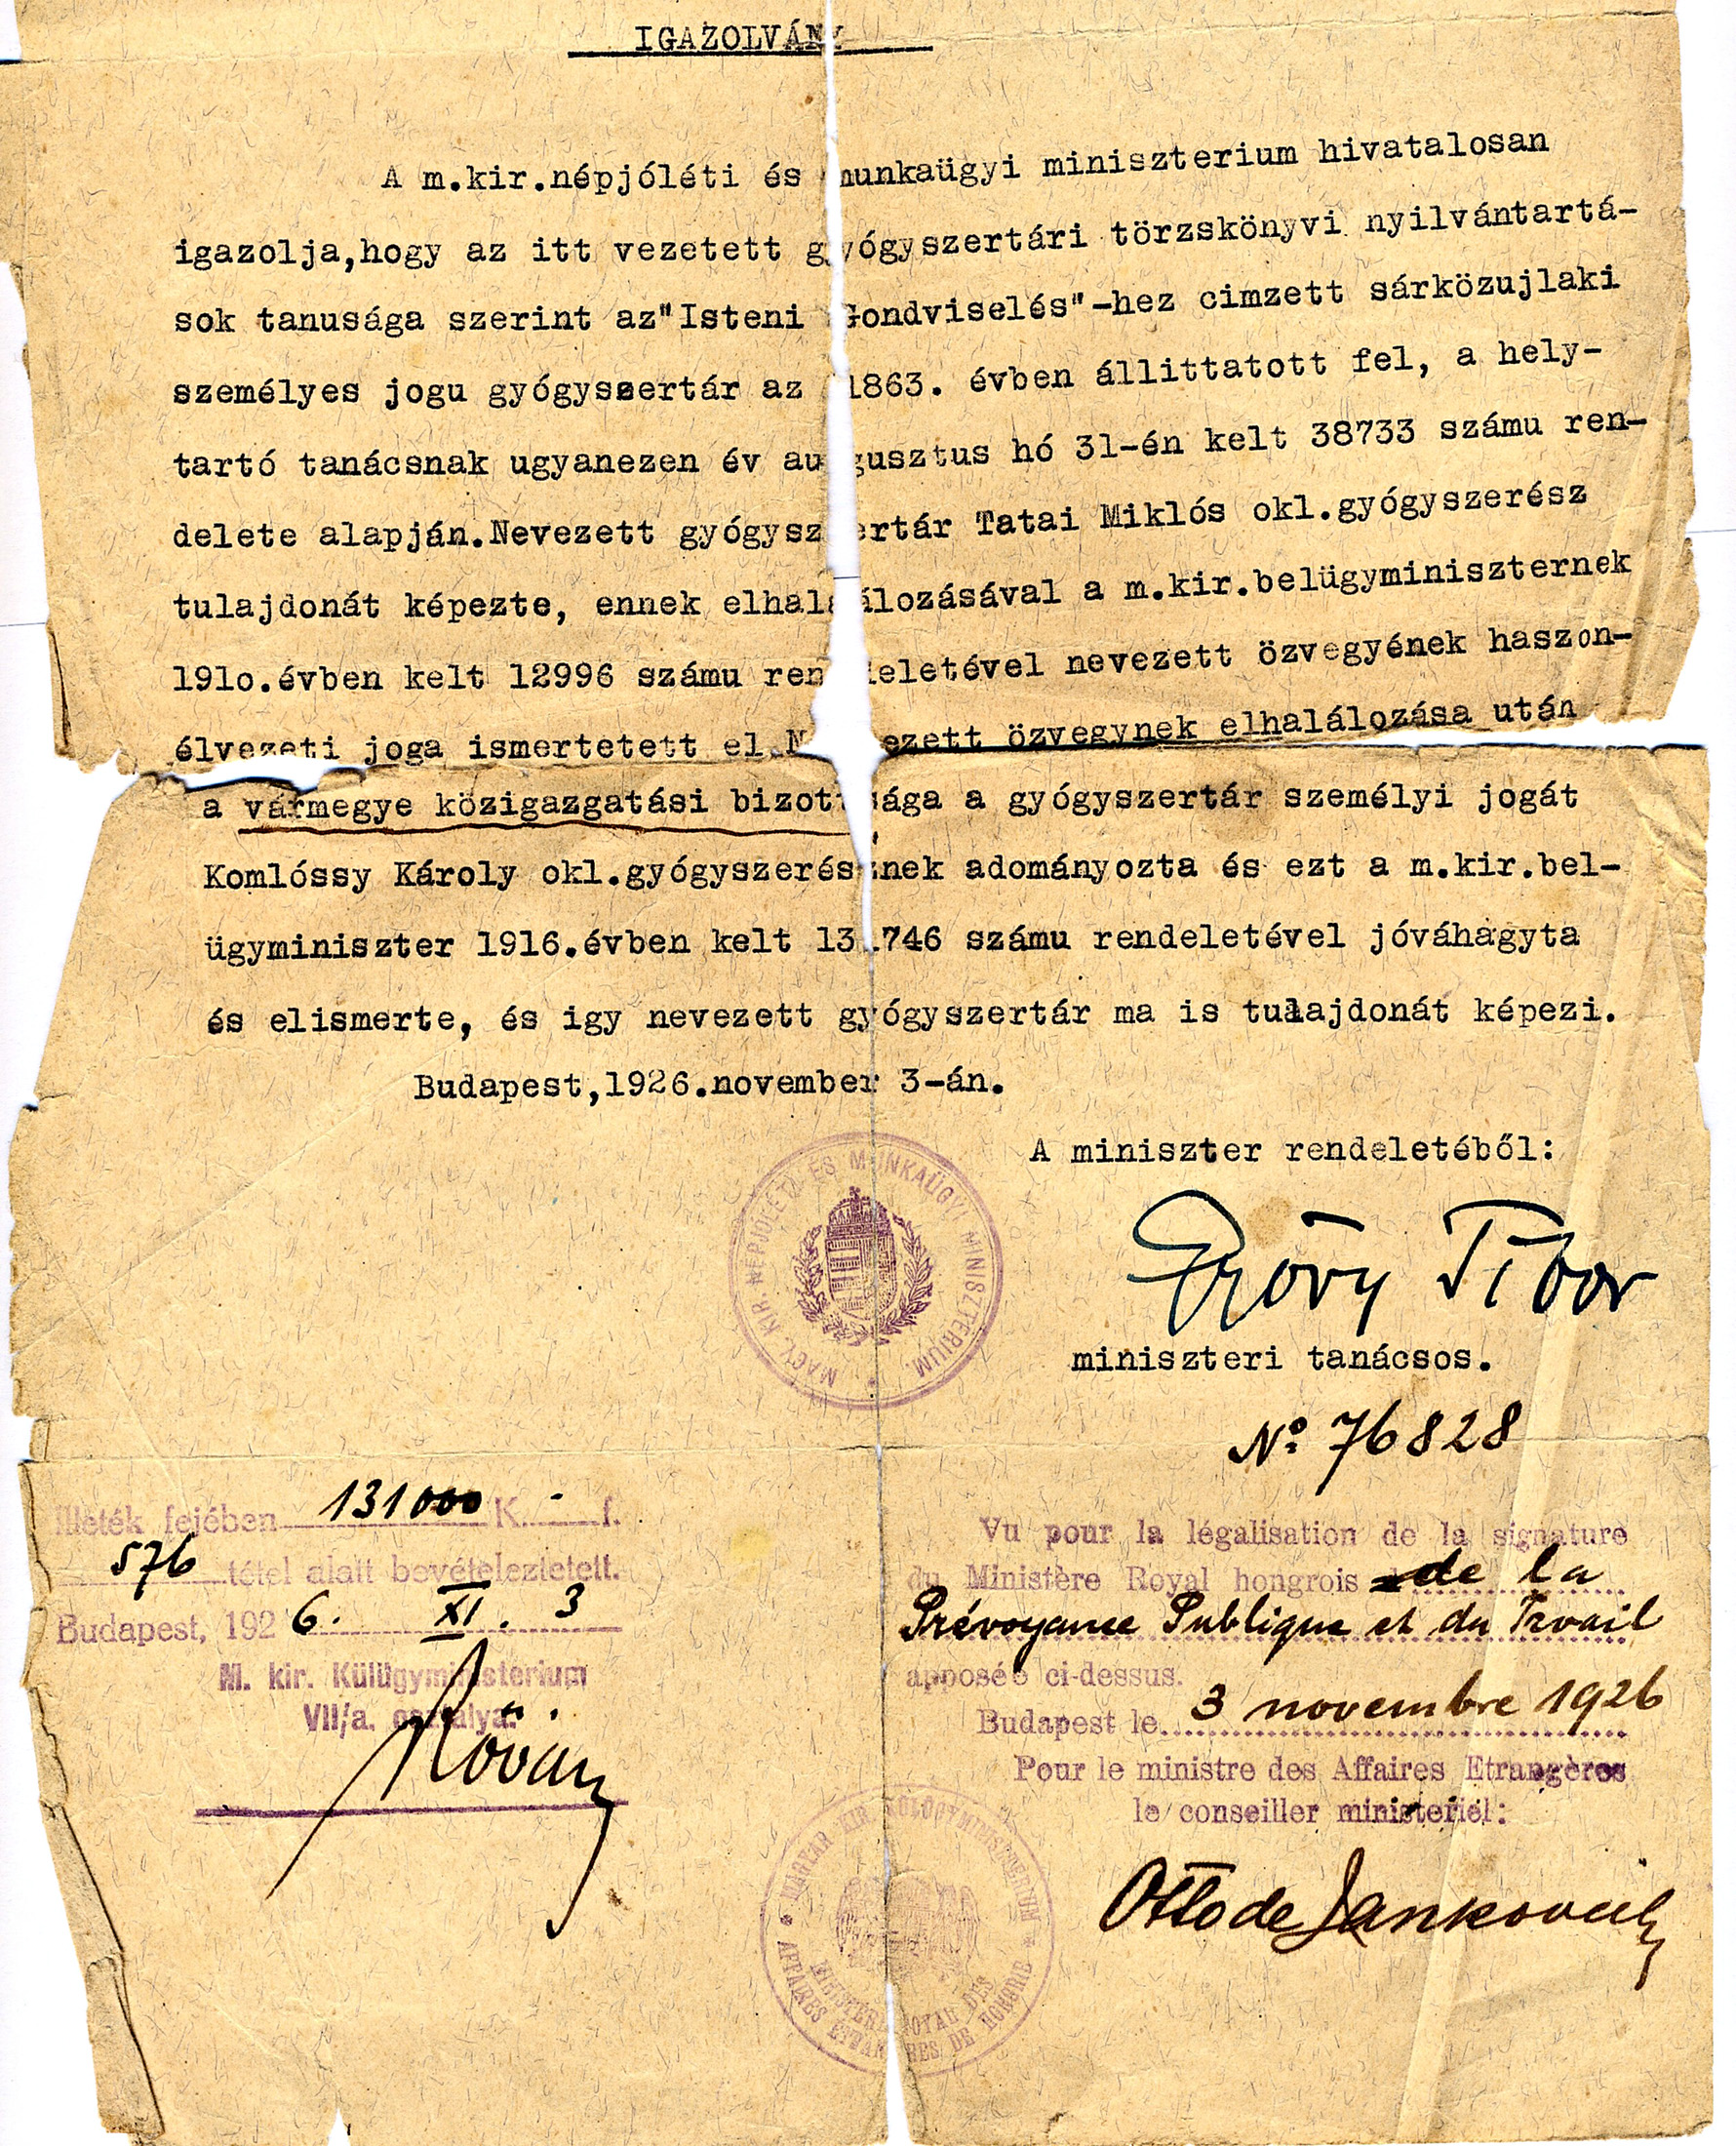 IGAZOLVÁNY
A m.kir.népjóléti és munkaügyi miniszterium hivatalosan
igazolja,hogy az itt vezetett gyógyszertári törzskönyvi nyilvántartá-
sok tanusága szerint az"Isteni Gondviselés"-hez cimzett sárközujlaki
személyes jogu gyógyszertár az 1863. évben állittatott fel, a hely-
tartó tanácsnak ugyanezen év augusztus hó 31-én kelt 38733 számu ren-
delete alapján.Nevezett gyógyszertár Tatai Miklós okl.gyógyszerész
tulajdonát képezte, ennek elhalálozásával a m.kir.belügyminiszternek
191o.évben kelt 12996 számu rendeletével nevezett özvegyének haszon-
élvezeti joga ismertetett el.Nevezett özvegynek elhalálozása után
a vármegye közigazgatási bizottsága a gyógyszertár személyi jogát
Komlóssy Károly okl.gyógyszerésznek adományozta és ezt a m.kir.bel-
ügyminiszter 1916.évben kelt 131746 számu rendeletével jóváhagyta
és elismerte, és igy nevezett gyógyszertár ma is tulajdonát képezi.
Budapest,1926.november 3-án.
A miniszter rendeletéből:
MAGY. KIR. NÉPJÓLÉTI ÉS MUNKAÜGYI MINISZTERIUM
Tibor
miniszteri tanácsos.
No. 76828
Illeték fejében 131000 K f.
576 tétel alatt bevételeztetett.
Budapest, 1926. XI. 3
M. kir. Külügyminiszterium
VII/a. osztálya.
Vu pour la légalisation de la signature
du Ministère Royal hongrois de la
Prévoyance Publique et du Travail
apposée ci-dessus.
Budapest le 3 novembre 1926
Pour le ministre des Affaires Etrangères
le conseiller ministeriel:
Otto de Jankovich
MAGYAR KIR. KÜLÜGYMINISZTERIUM
MINISTÈRE ROYAL DES
AFFAIRES ÉTRANGÈRES DE HONGRIE